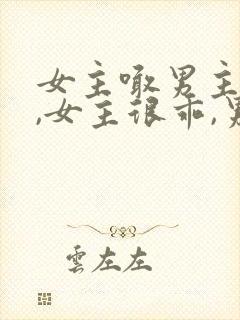 女主瞰男主
,女主很乖,男
雲左左